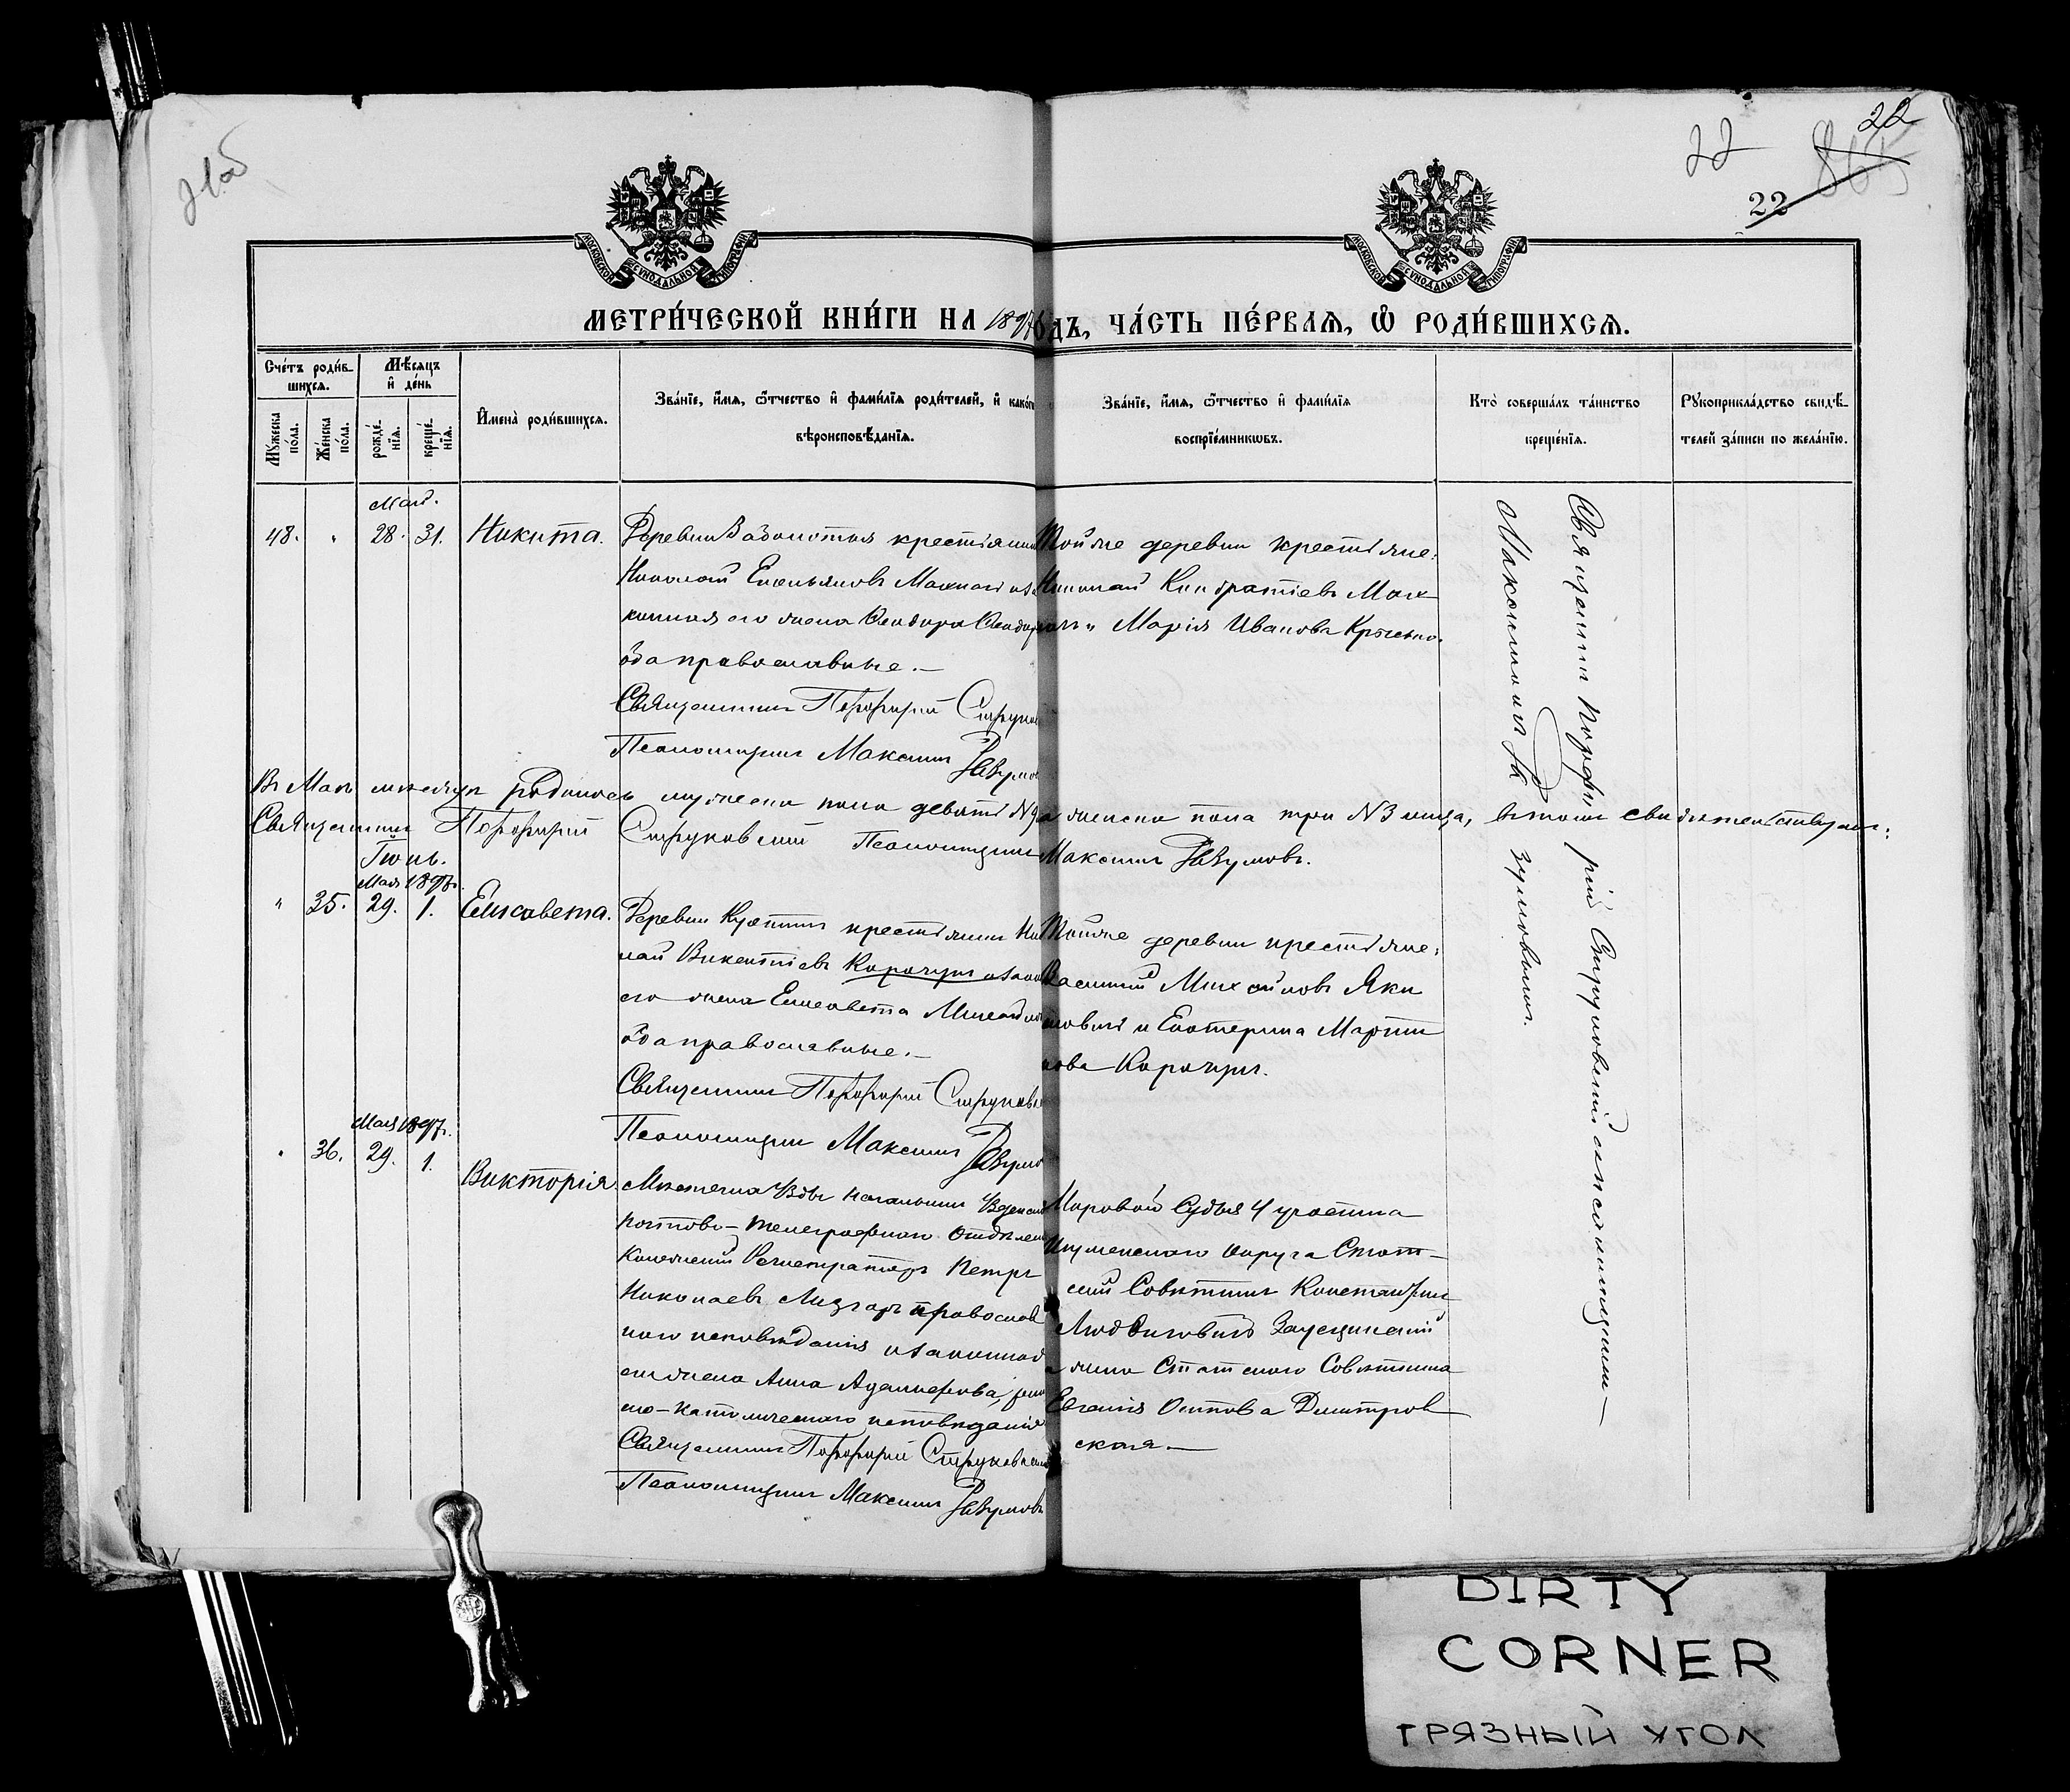 21об
22
22
22
МОСКОВСКОЙ СѴНОДАЛЬНОЙ ТИПОГРАФІИ
МОСКОВСКОЙ СѴНОДАЛЬНОЙ ТИПОГРАФІИ
МЕТРИ́ЧЕСКОЙ КНИ́ГИ НА 1897 ГОДЪ, ЧА́СТЬ ПЕ́РВАѦ, Ѽ РОДИ́ВШИХСѦ.
Сче́тъ роди́вшихсѧ.
Мꙋ́жеска по́ла.
Же́нска по́ла.
Мѣ́сѧцъ и҆ де́нь
рожде́нїѧ.
креще́нїѧ.
И҆мена̀ роди́вшихсѧ.
Зва́нїе, и҆́мѧ, ѻ҆́тчество и҆ фами́лїѧ роди́телей, и҆ како́гѡ
вѣроисповѣ́данїѧ.
Зва́нїе, и҆́мѧ, ѻ҆́тчество и҆ фами́лїѧ
воспрїе́мникѡвъ.
Кто̀ соверша́лъ та́инство
креще́нїѧ.
Рꙋкоприкла́дство свидѣ́телей за́писи по жела́нїю.
Май.
48. " 28. 31. Никита.
Деревни Заболотья крестьянин
Николай Емельяновъ
жена Ѳеодора
оба православные.
Священникъ Порфирій Струковскій
Псаломщикъ Максимъ Разумовъ
Той же деревни крестьяне:
Николай Киндратіевъ
Марія Иванова
Священникъ Порфирій Струковскій съ псаломщикомъ
Максимомъ Разумовымъ.
Въ Маѣ мѣсяцѣ родилось мужеска пола девять №9 а женска пола три №3 лица, въ томъ свидѣтельствуемъ:
Священникъ Порфирій Струковскій Псаломщикъ Максимъ Разумовъ.
Іюнь.
Мая 1897г.
" 35. 29. 1. Елисавета.
Деревни крестьянинъ Николай
Викентіевъ Корочунъ
его жена Елисавета
оба православные.
Священникъ Порфирій Струковскій
Псаломщикъ Максимъ Разумовъ
Той же деревни крестьяне:
Василій Михайловъ Яки
мовичъ и Екатерина Марти
нова Корочунъ.
Мая 1897г.
" 36. 29. 1. Викторія.
Мѣстечка Узды начальникъ Узденскаго
почтово-телеграфнаго отдѣленія
Коллежскій Регистраторъ Петръ
Николаевъ православ
наго исповѣданія и законная
его жена Анна римско-католическаго исповѣданія
Священникъ Порфирій Струковскій
Псаломщикъ Максимъ Разумовъ
Мировой Судья 4 участка
Игуменскаго округа Стат-
скій Совѣтникъ Константинъ
Людвиговичъ
и жена Статскаго Совѣтника
Евгенія Осипова Дмитров
ская.
DIRTY
CORNER
ГРЯЗНЫЙ УГОЛ